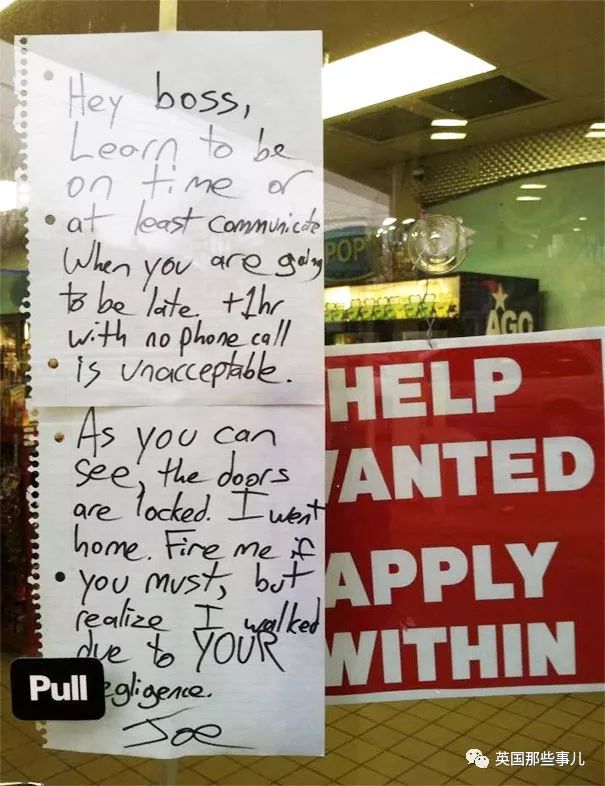 Hey boss,
Learn to be
on time or
at least communicate
when you are going
to be late. +1hr
with no phone call
is unacceptable.
As you can
see, the doors
are locked. I went
home. Fire me if
you must, but
realize I walked
due to YOUR
egligence.
Joe
Pull
POP
AGO
HELP
WANTED
APPLY
WITHIN
英国那些事儿